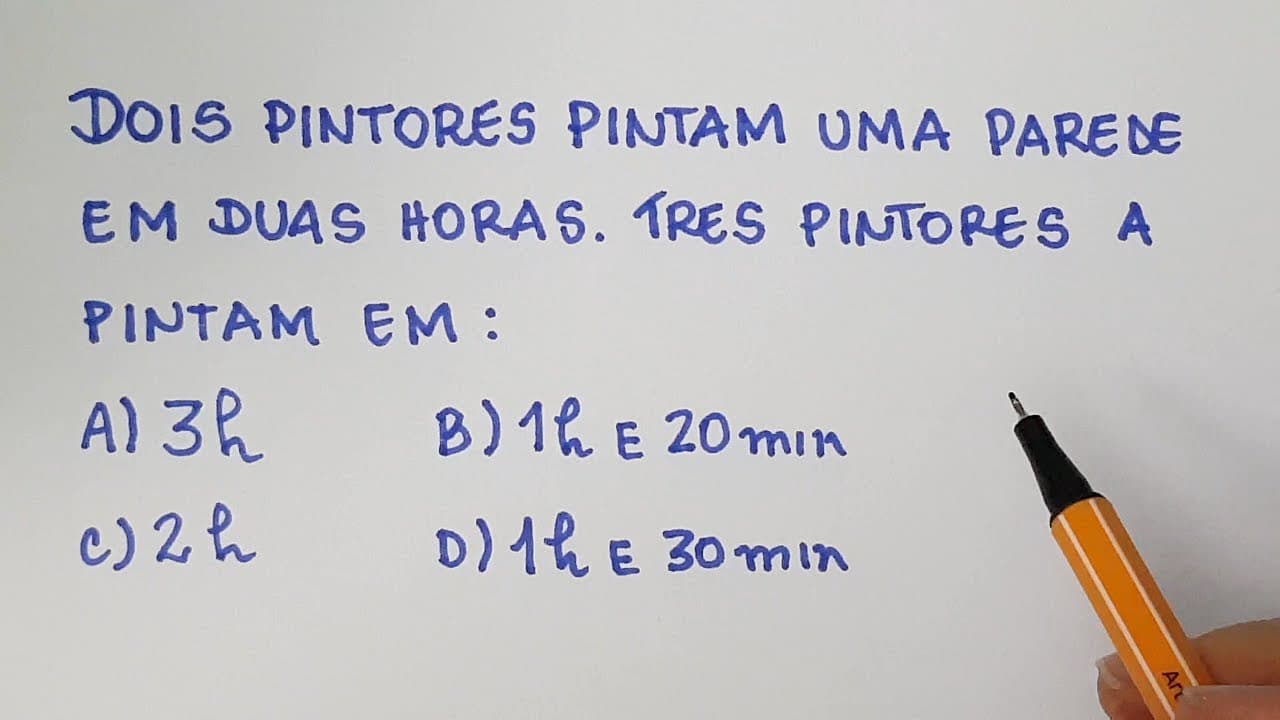 DOIS PINTORES PINTAM UMA PAREDE
EM DUAS HORAS. TRES PINTORES A
PINTAM EM:
A) 3h B) 1h E 20 min
C) 2h D) 1h E 30 min